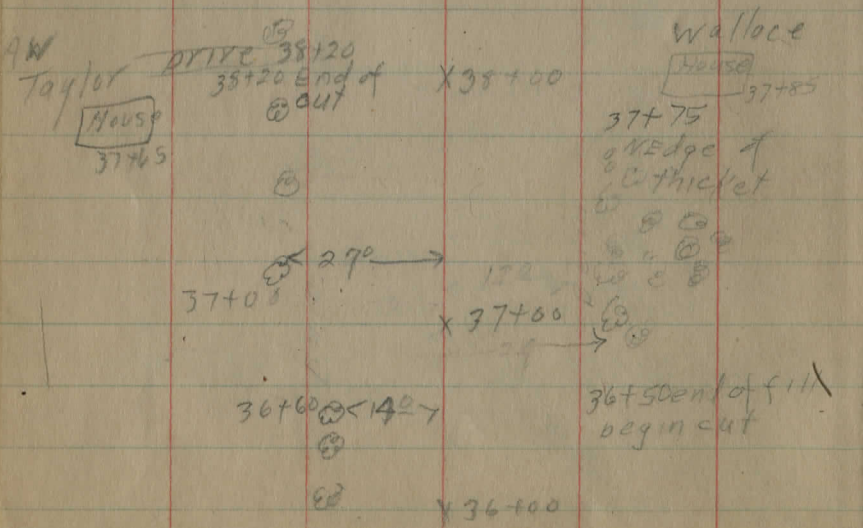 Wallace
AW
Taylor Drive 38+20
38+20 End of
cut
X 38+00
House
37+85
House
37+65
37+75
N Edge of
thicket
27°
37+00
X 37+00
36+60
14°
36+50 end of fill
begin cut
X 36+00